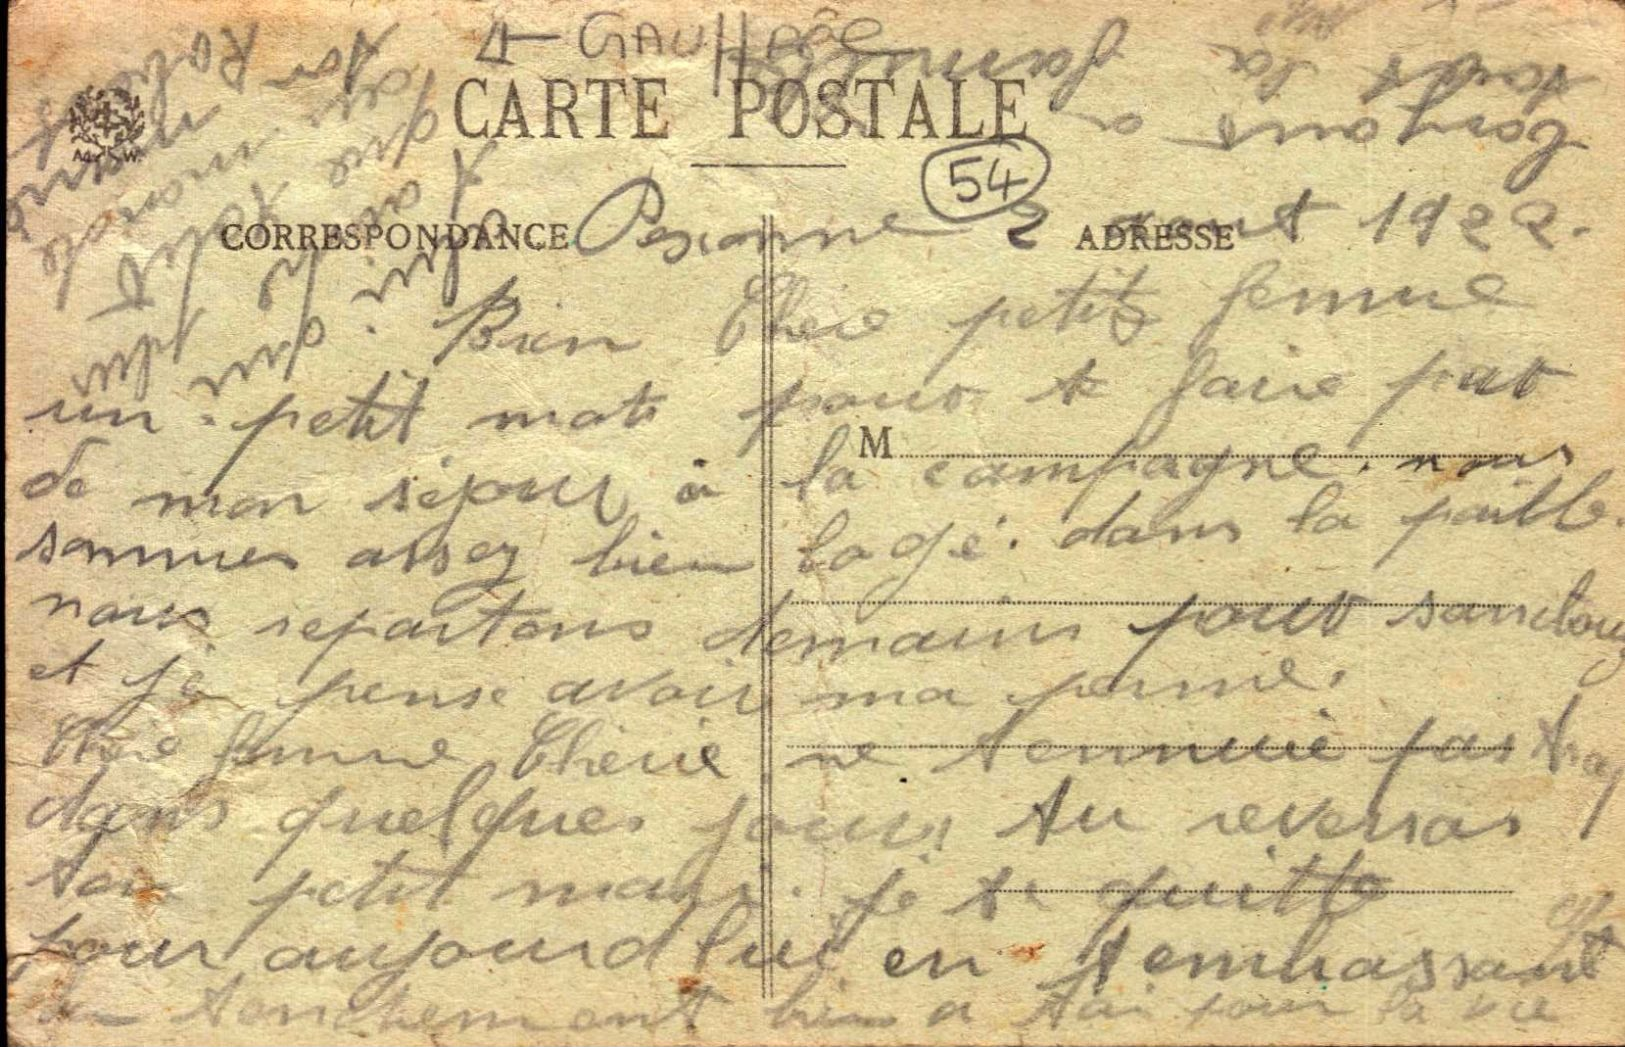 GAUHARÉ
CARTE POSTALE
54
A. W.
CORRESPONDANCE
ADRESSE
Pexonne 2 aout 1922.
Bien Chere petite femme
un petit mots pour te faire part
M
de mon séjour à la campagne. nous
sommes assez bien logé. dans la paille.
nous repartons demain pour
et je pense avoir ma perme.
Chère femme Chérie ne tennuie pas trop
dans quelques jours tu reverras
ton petit mari. je te quitte
pour aujourdhui en tembrassant
tendrement bien a toi pour la vie
bonjour a
toute la famille
ton Robert
qui
plus